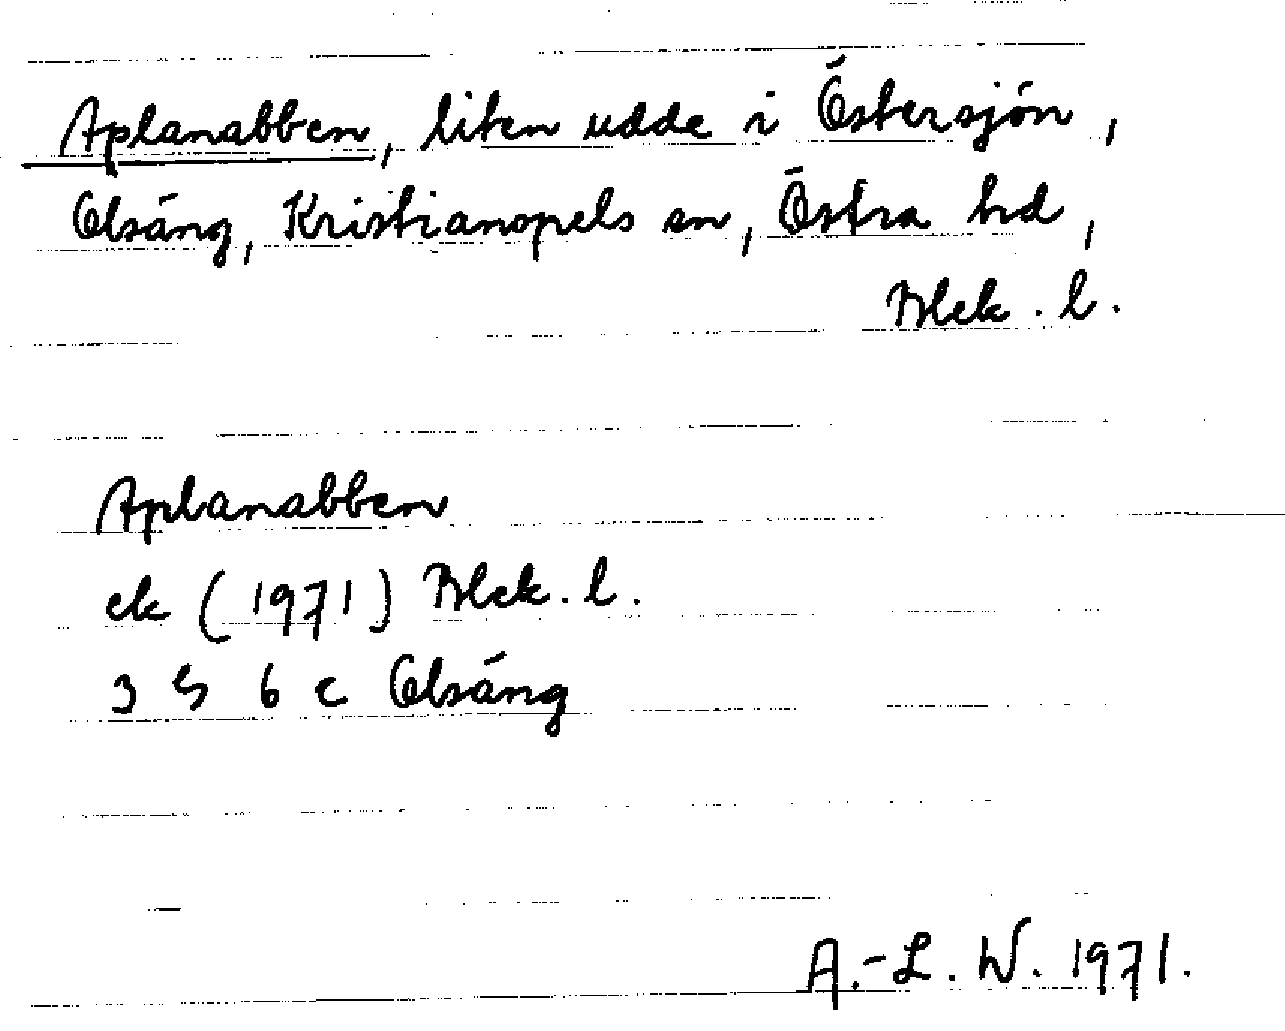 Aplanabben, liten udde i Östersjön,
Olsäng, Kristianopels sn, Östra hd,
Blek. l.
Aplanabben
ek (1971) Blek. l.
3 G 6 c Olsäng
A.-L. W. 1971.